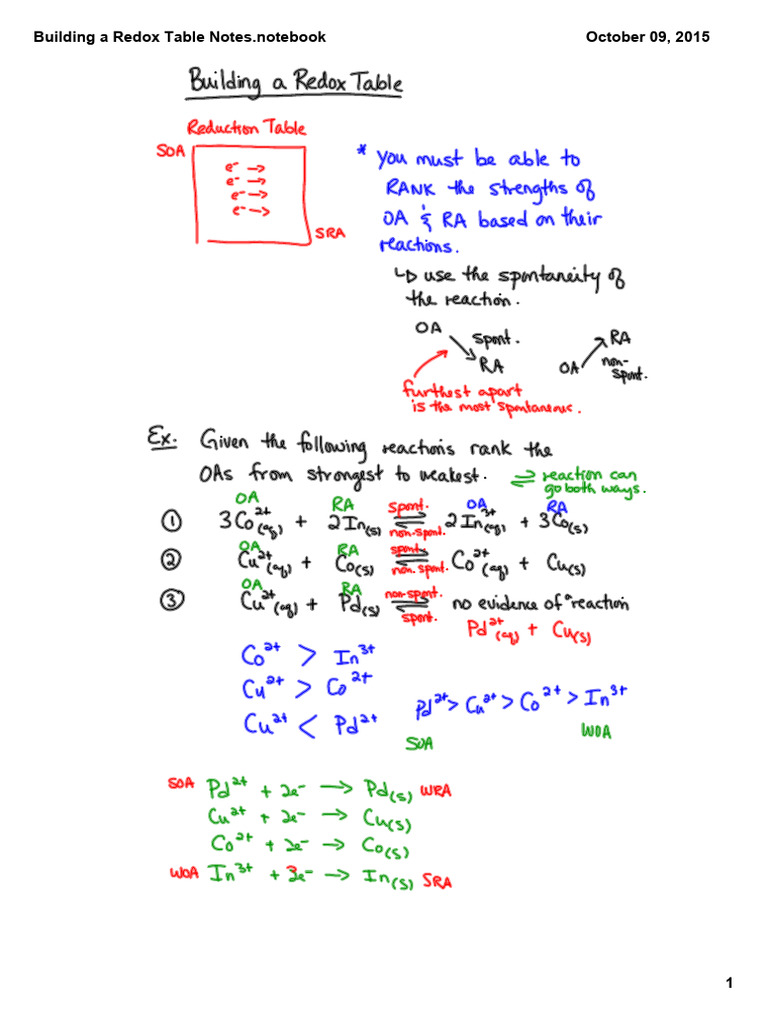 Building a Redox Table Notes.notebook
October 09, 2015
Building a Redox Table
Reduction Table
SOA
e⁻ →
e⁻ →
e⁻ →
e⁻ →
SRA
* you must be able to
RANK the strengths of
OA & RA based on their
reactions.
↳ use the spontaneity of
the reaction.
OA
spont.
RA
RA
OA
non-
spont.
furthest apart
is the most spontaneous.
Ex. Given the following reactions rank the
OAs from strongest to weakest.
⇌ reaction can
go both ways.
OA RA spont. OA RA
① 3Co²⁺(aq) + 2In(s) ⇌ 2In³⁺(aq) + 3Co(s)
non-spont.
OA RA spont.
② Cu²⁺(aq) + Co(s) ⇌ Co²⁺(aq) + Cu(s)
non-spont.
OA RA non-spont.
③ Cu²⁺(aq) + Pd(s) ⇌ no evidence of a reaction
spont.
Pd²⁺(aq) + Cu(s)
Co²⁺ > In³⁺
Cu²⁺ > Co²⁺
Cu²⁺ < Pd²⁺
Pd²⁺ > Cu²⁺ > Co²⁺ > In³⁺
SOA WOA
SOA Pd²⁺ + 2e⁻ → Pd(s) WRA
Cu²⁺ + 2e⁻ → Cu(s)
Co²⁺ + 2e⁻ → Co(s)
WOA In³⁺ + 3e⁻ → In(s) SRA
1